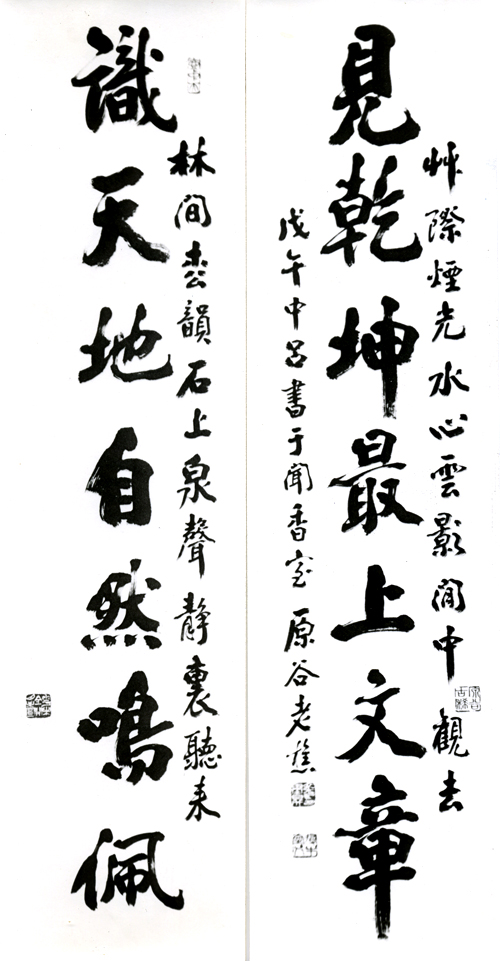 艸際煙光水心雲影閒中觀去
見乾坤最上文章
戊午中呂書于聞香室原谷老樵
林間枩韻石上泉聲静裏聽来
識天地自然鳴佩